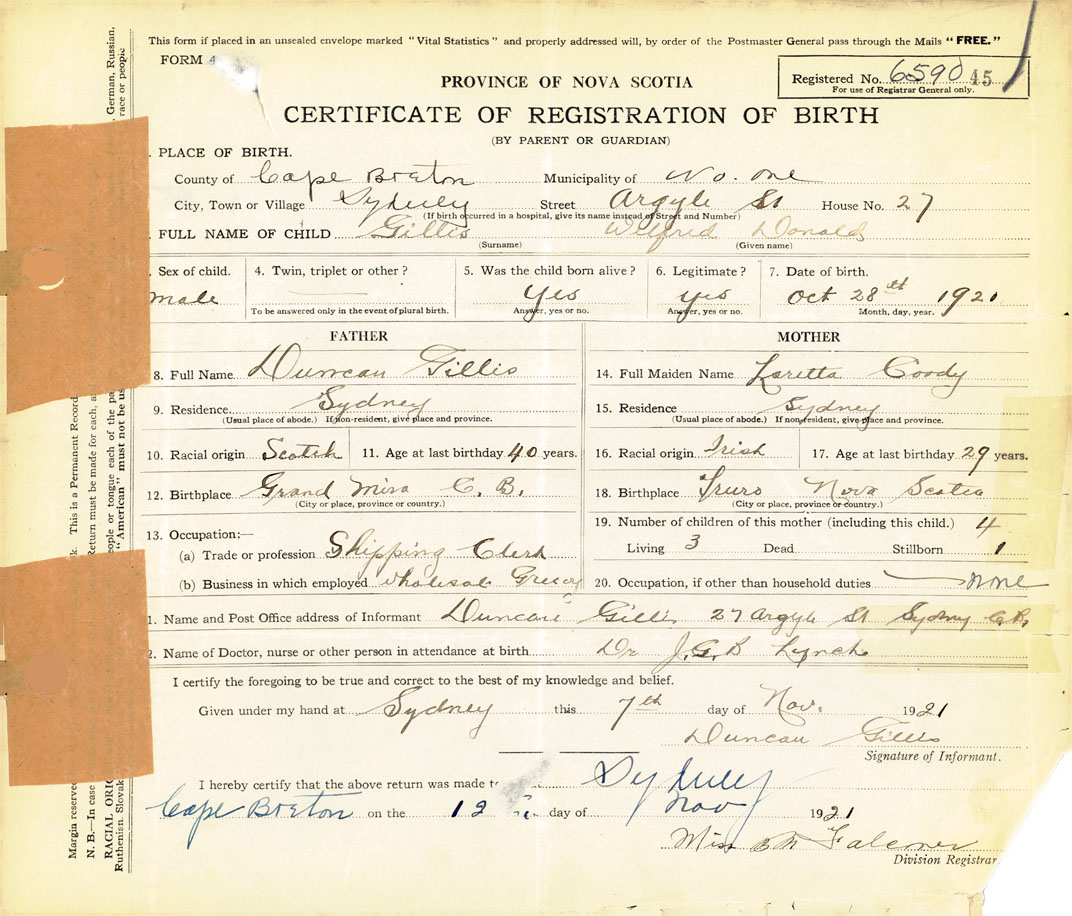 This form if placed in an unsealed envelope marked "Vital Statistics" and properly addressed will, by order of the Postmaster General pass through the Mails "FREE."
FORM 4
Registered No. 6590 45
For use of Registrar General only.
PROVINCE OF NOVA SCOTIA
CERTIFICATE OF REGISTRATION OF BIRTH
(BY PARENT OR GUARDIAN)
. PLACE OF BIRTH.
County of Cape Breton Municipality of No. one
City, Town or Village Sydney Street Argyle St House No. 27
(If birth occurred in a hospital, give its name instead of Street and Number)
. FULL NAME OF CHILD Gillis Wilfred Donald
(Surname) (Given name)
. Sex of child. 4. Twin, triplet or other? 5. Was the child born alive? 6. Legitimate? 7. Date of birth.
male yes yes Oct 28th 1921
To be answered only in the event of plural birth. Answer, yes or no. Answer, yes or no. Month, day, year.
FATHER
8. Full Name Duncan Gillis
9. Residence Sydney
(Usual place of abode.) If non-resident, give place and province.
10. Racial origin Scotch 11. Age at last birthday 40 years.
12. Birthplace Grand Mira C. B.
(City or place, province or country.)
13. Occupation:—
(a) Trade or profession Shipping Clerk
(b) Business in which employed wholesale
MOTHER
14. Full Maiden Name Loretta Coody
15. Residence Sydney
(Usual place of abode.) If non-resident, give place and province.
16. Racial origin Irish 17. Age at last birthday 29 years.
18. Birthplace Truro Nova Scotia
(City or place, province or country.)
19. Number of children of this mother (including this child.) 4
Living 3 Dead Stillborn 1
20. Occupation, if other than household duties none
1. Name and Post Office address of Informant Duncan Gillis 27 Argyle St Sydney C.B.
2. Name of Doctor, nurse or other person in attendance at birth Dr J.G.B Lynch
I certify the foregoing to be true and correct to the best of my knowledge and belief.
Given under my hand at Sydney this 7th day of Nov. 1921
Duncan Gillis
Signature of Informant.
I hereby certify that the above return was made to Sydney
Cape Breton on the 12 day of Nov 1921
Miss Falconer
Division Registrar
Margin reserved
This is a Permanent Record
N. B.—In case
Return must be made for each, a
RACIAL ORIG
people or tongue each of the pa
German, Russian,
Ruthenian, Slovak
"American" must not be us
race or people